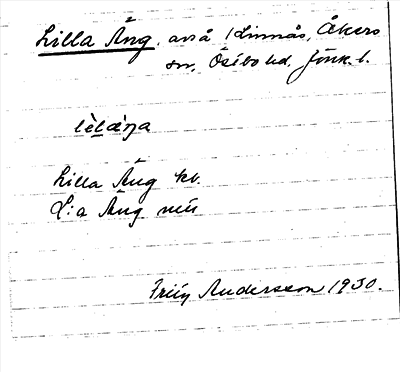 Lilla Äng, avs å Linnås, Åkers
sn, Östbo hd, Jönk. l.
lèlæ̀ŋa
Lilla Äng kb.
L:a Äng mü
Friy Andersson 1930.